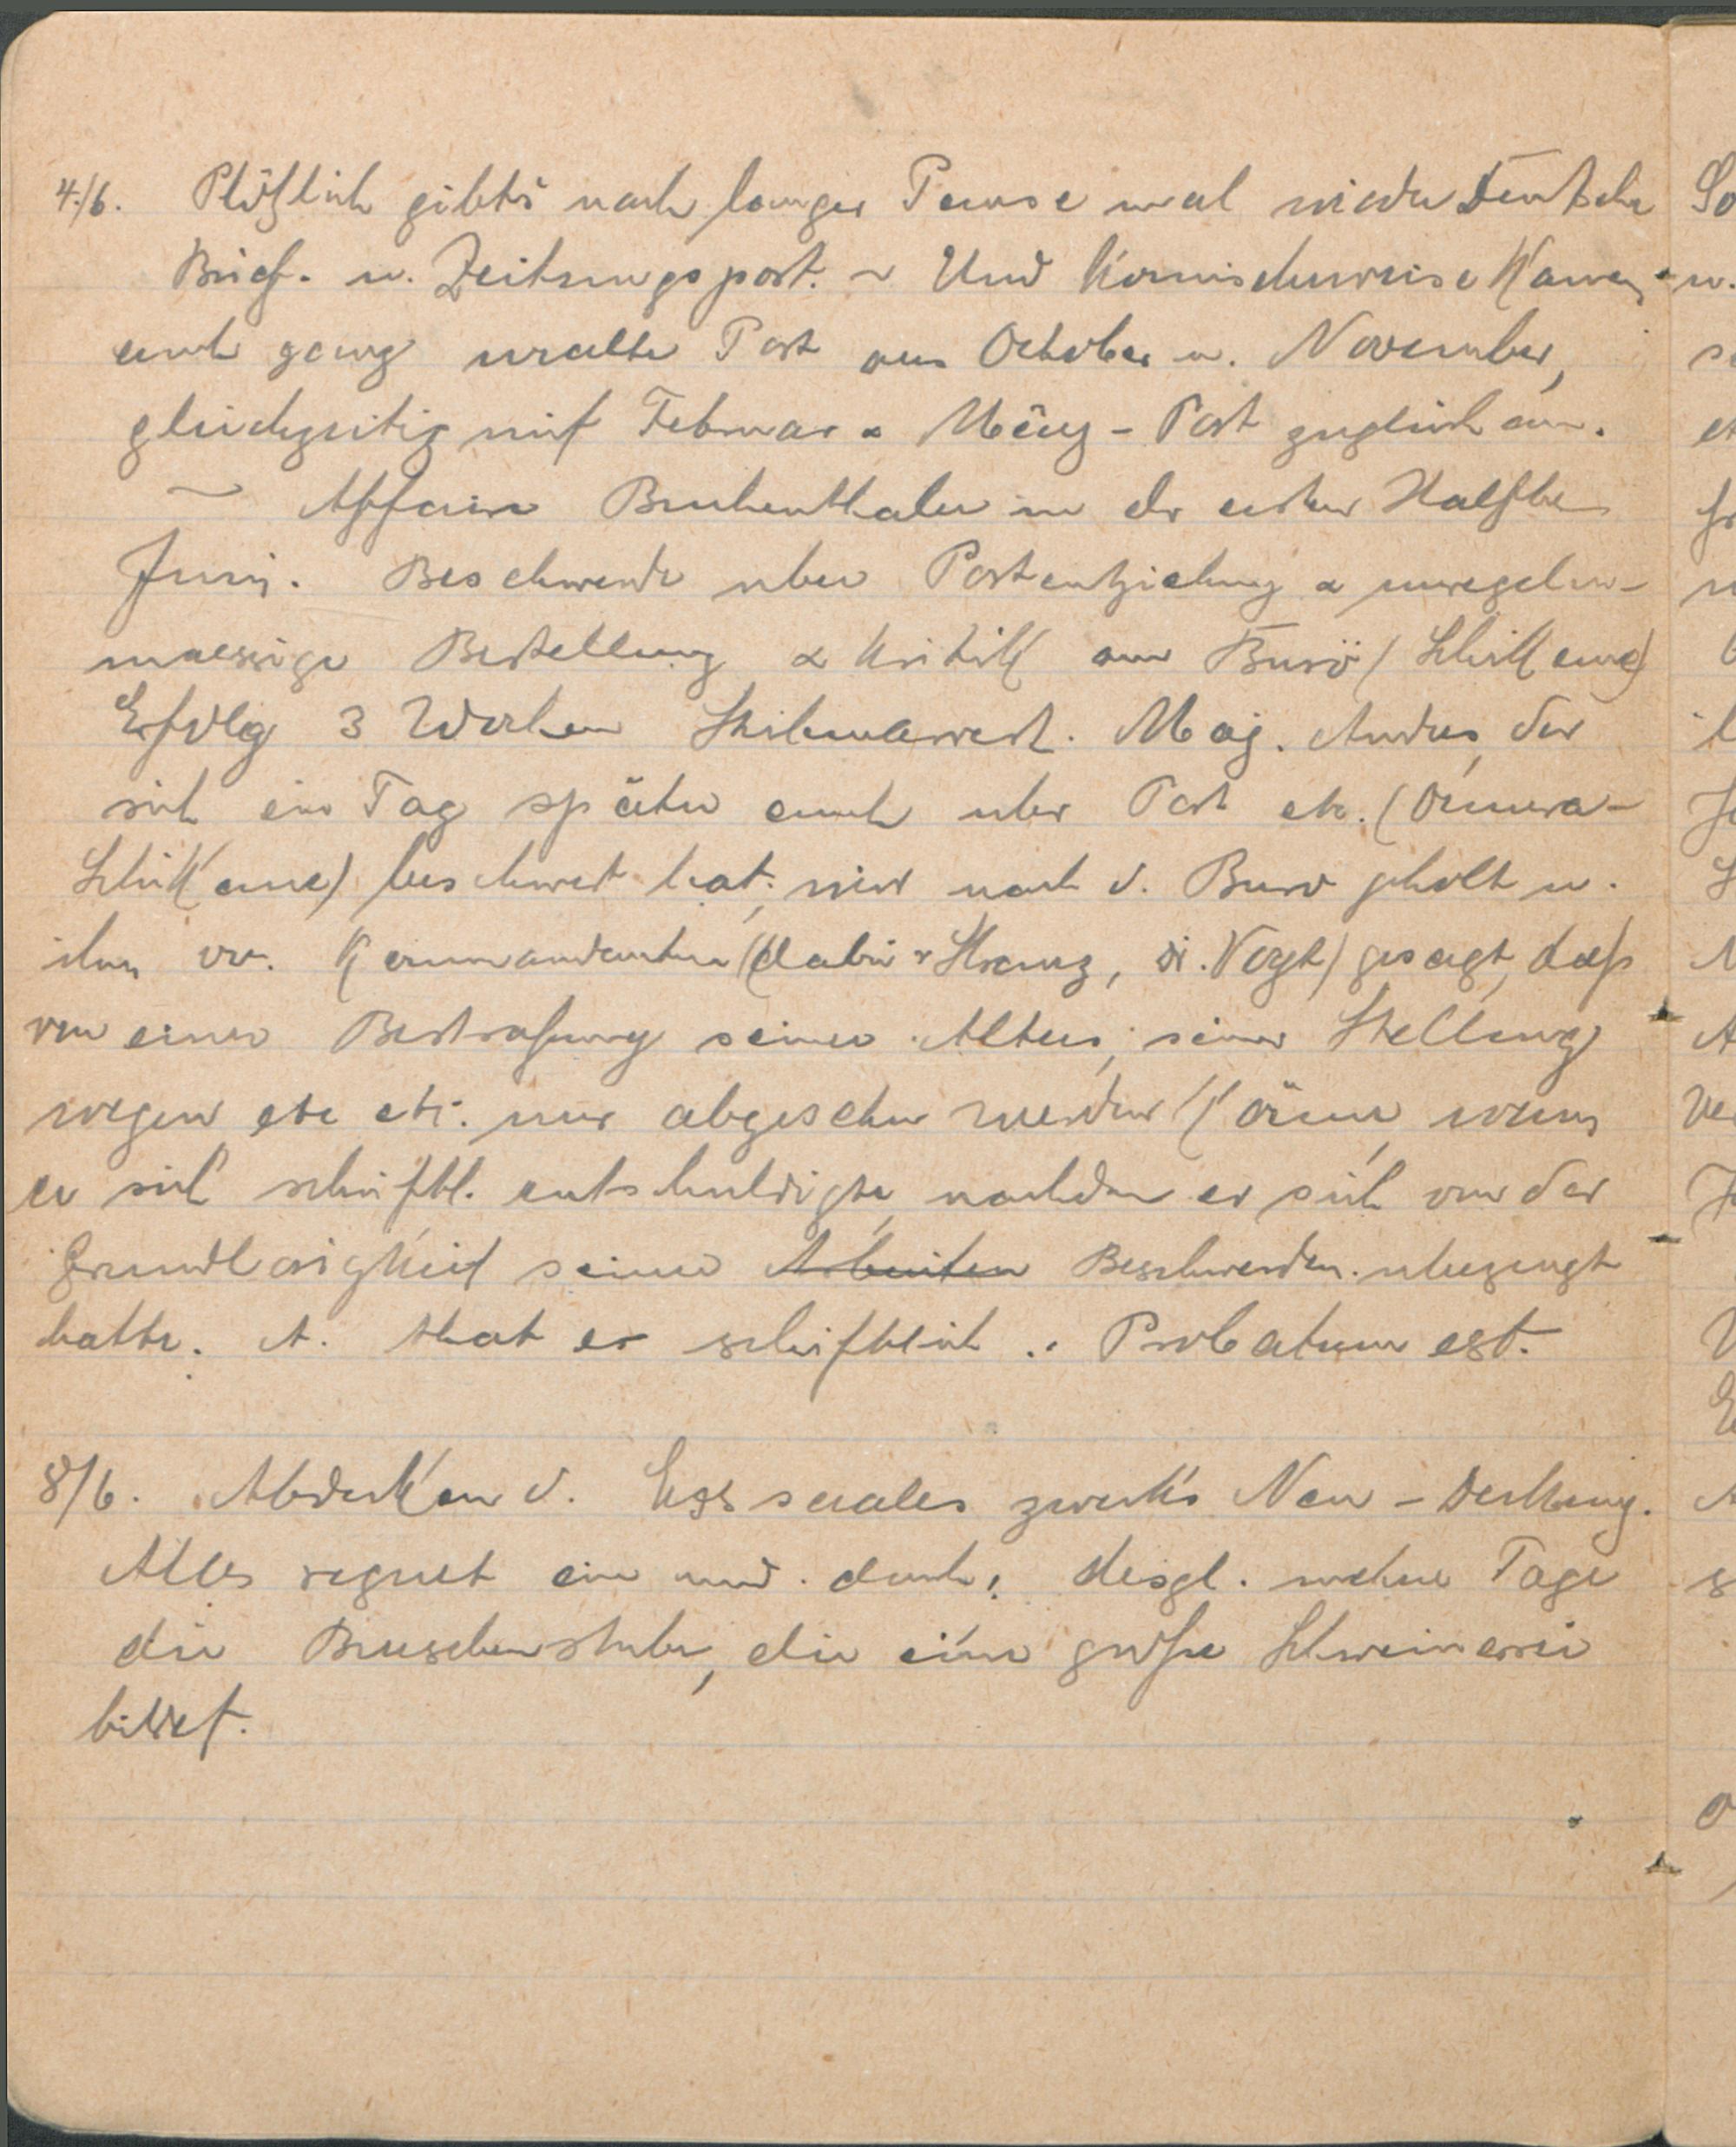 4./6. Plötzlich gibt's nach langer Pause mal wieder Deutsche
Brief- u. Zeitungspost. ~ Und komischerweise kamen
auch ganz uralte Post aus October u. November,
gleichzeitig mit Februar & März-Post zugleich an.
~ Affaire Bruhenthaler in der ersten Hälfte
Juni. Beschwerde über Postentziehung & unregelm-
maessige Bestellung & Kritik am Büro (Schikane)
Erfolg 3 Wochen Stubenarrest. Maj. Andres, der
sich ein Tag später auch über Post etc. (
Schikane) beschwert hat, wird nach d. Buro geholt u.
ihm vom Kommandanten (dabei Kranz, Vogt) gesagt, daß
von einer Bestrafung seines Alters, seiner Stellung
wegen etc etc. nur abgesehen werden könne, wenn
er sich schriftl. entschuldigte, nachdem er sich von der
Grundlosigkeit seiner Arbeiten Beschwerden überzeugt
hatte. A. that es schriftlich.. Probatum est.
8/6. Abdecken d. Esssaales zwecks Neu-Deckung.
Alles regnet ein und durch; desgl. mehrere Tage
die Burschenstube, die eine große Schweinerei
bildet.
So
u.